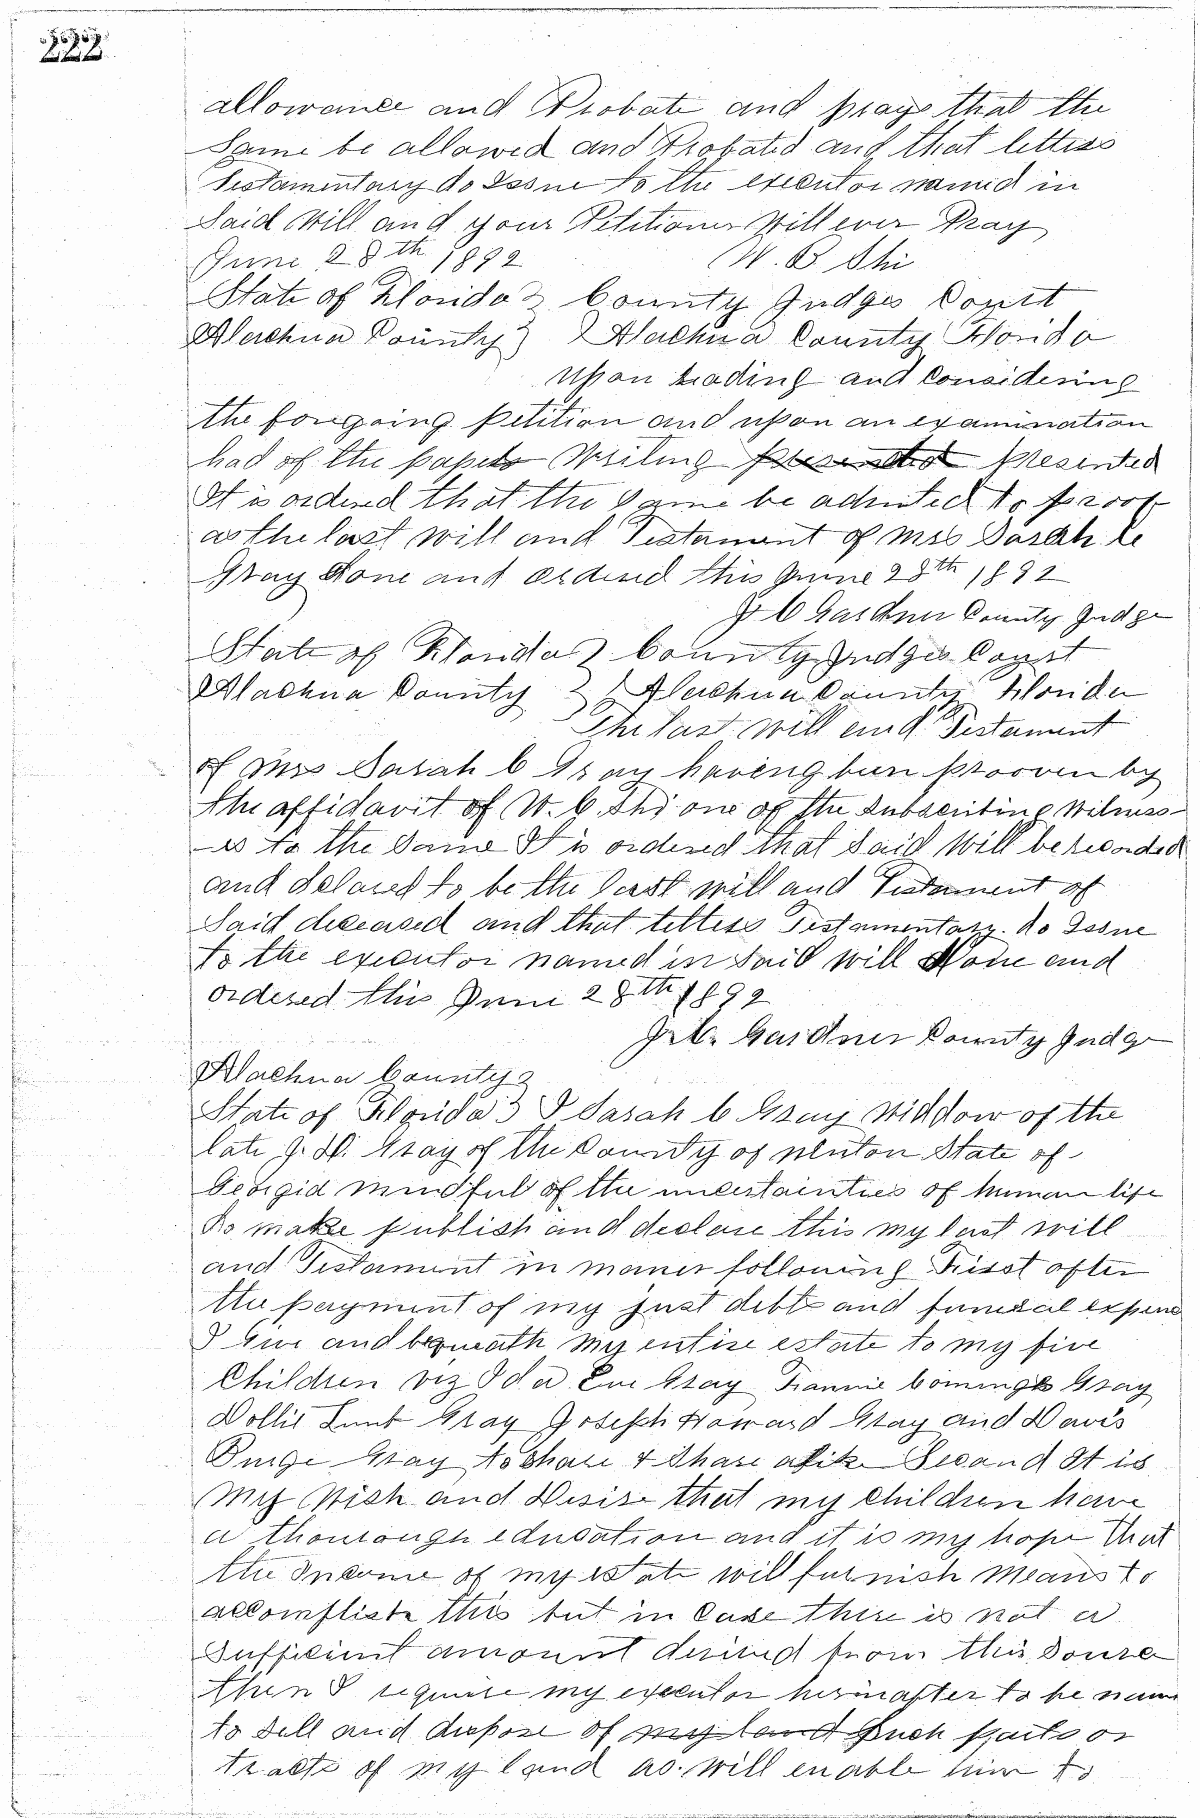 222
allowance and Probate and prays that the
Same be allowed and Probated and that letters
Testamentary do Issue to the executor named in
Said Will and your Petitioner Will ever Pray
June 28th 1892 W. B Shi
State of Florida } County Judges Court
Alachua County } Alachua County Florida
Upon reading and Considering
the foregoing petition and upon an examination
had of the papers Writing presented presented
It is ordered that the Same be admited to proof
as the last Will and Testament of Mrs Sarah C
Gray Done and ordered this June 28th 1892
J C Gardner County Judge
State of Florida } County Judges Court
Alachua County } Alachua County Florida
The last Will and Testament
of Mrs Sarah C Gray having been prooven by
the affidavit of W. C. Shi one of the Subscribing Witness-
-es to the Same It is ordered that Said Will be recorded
and delared to be the last Will and Testament of
Said deceased and that letters Testamentary do Issue
to the executor named in Said Will Done and
ordered this June 28th 1892
J. C. Gardner County Judge
Alachua County }
State of Florida } I Sarah C Gray Widdow of the
late J. D. Gray of the County of Newton State of
Georgia mindful of the uncertainties of human life
do make publish and declare this my last Will
and Testament in maner following First after
the payment of my just debts and funeral expens
I Give and bequeath my entire estate to my five
Children viz Ida Eve Gray Fannie Comings Gray
Dollie Lunt Gray Joseph Howard Gray and Davis
Purge Gray to Share & Share alike Second It is
My Wish and Desire that my Children have
a thourough education and it is my hope that
the Income of my estate will furnish Means to
accomplish this but in Case there is not a
Sufficient amount derived from this Source
then I require my executor herinafter to be name
to Sell and dispose of my land Such parts or
tracts of my land as will enable him to